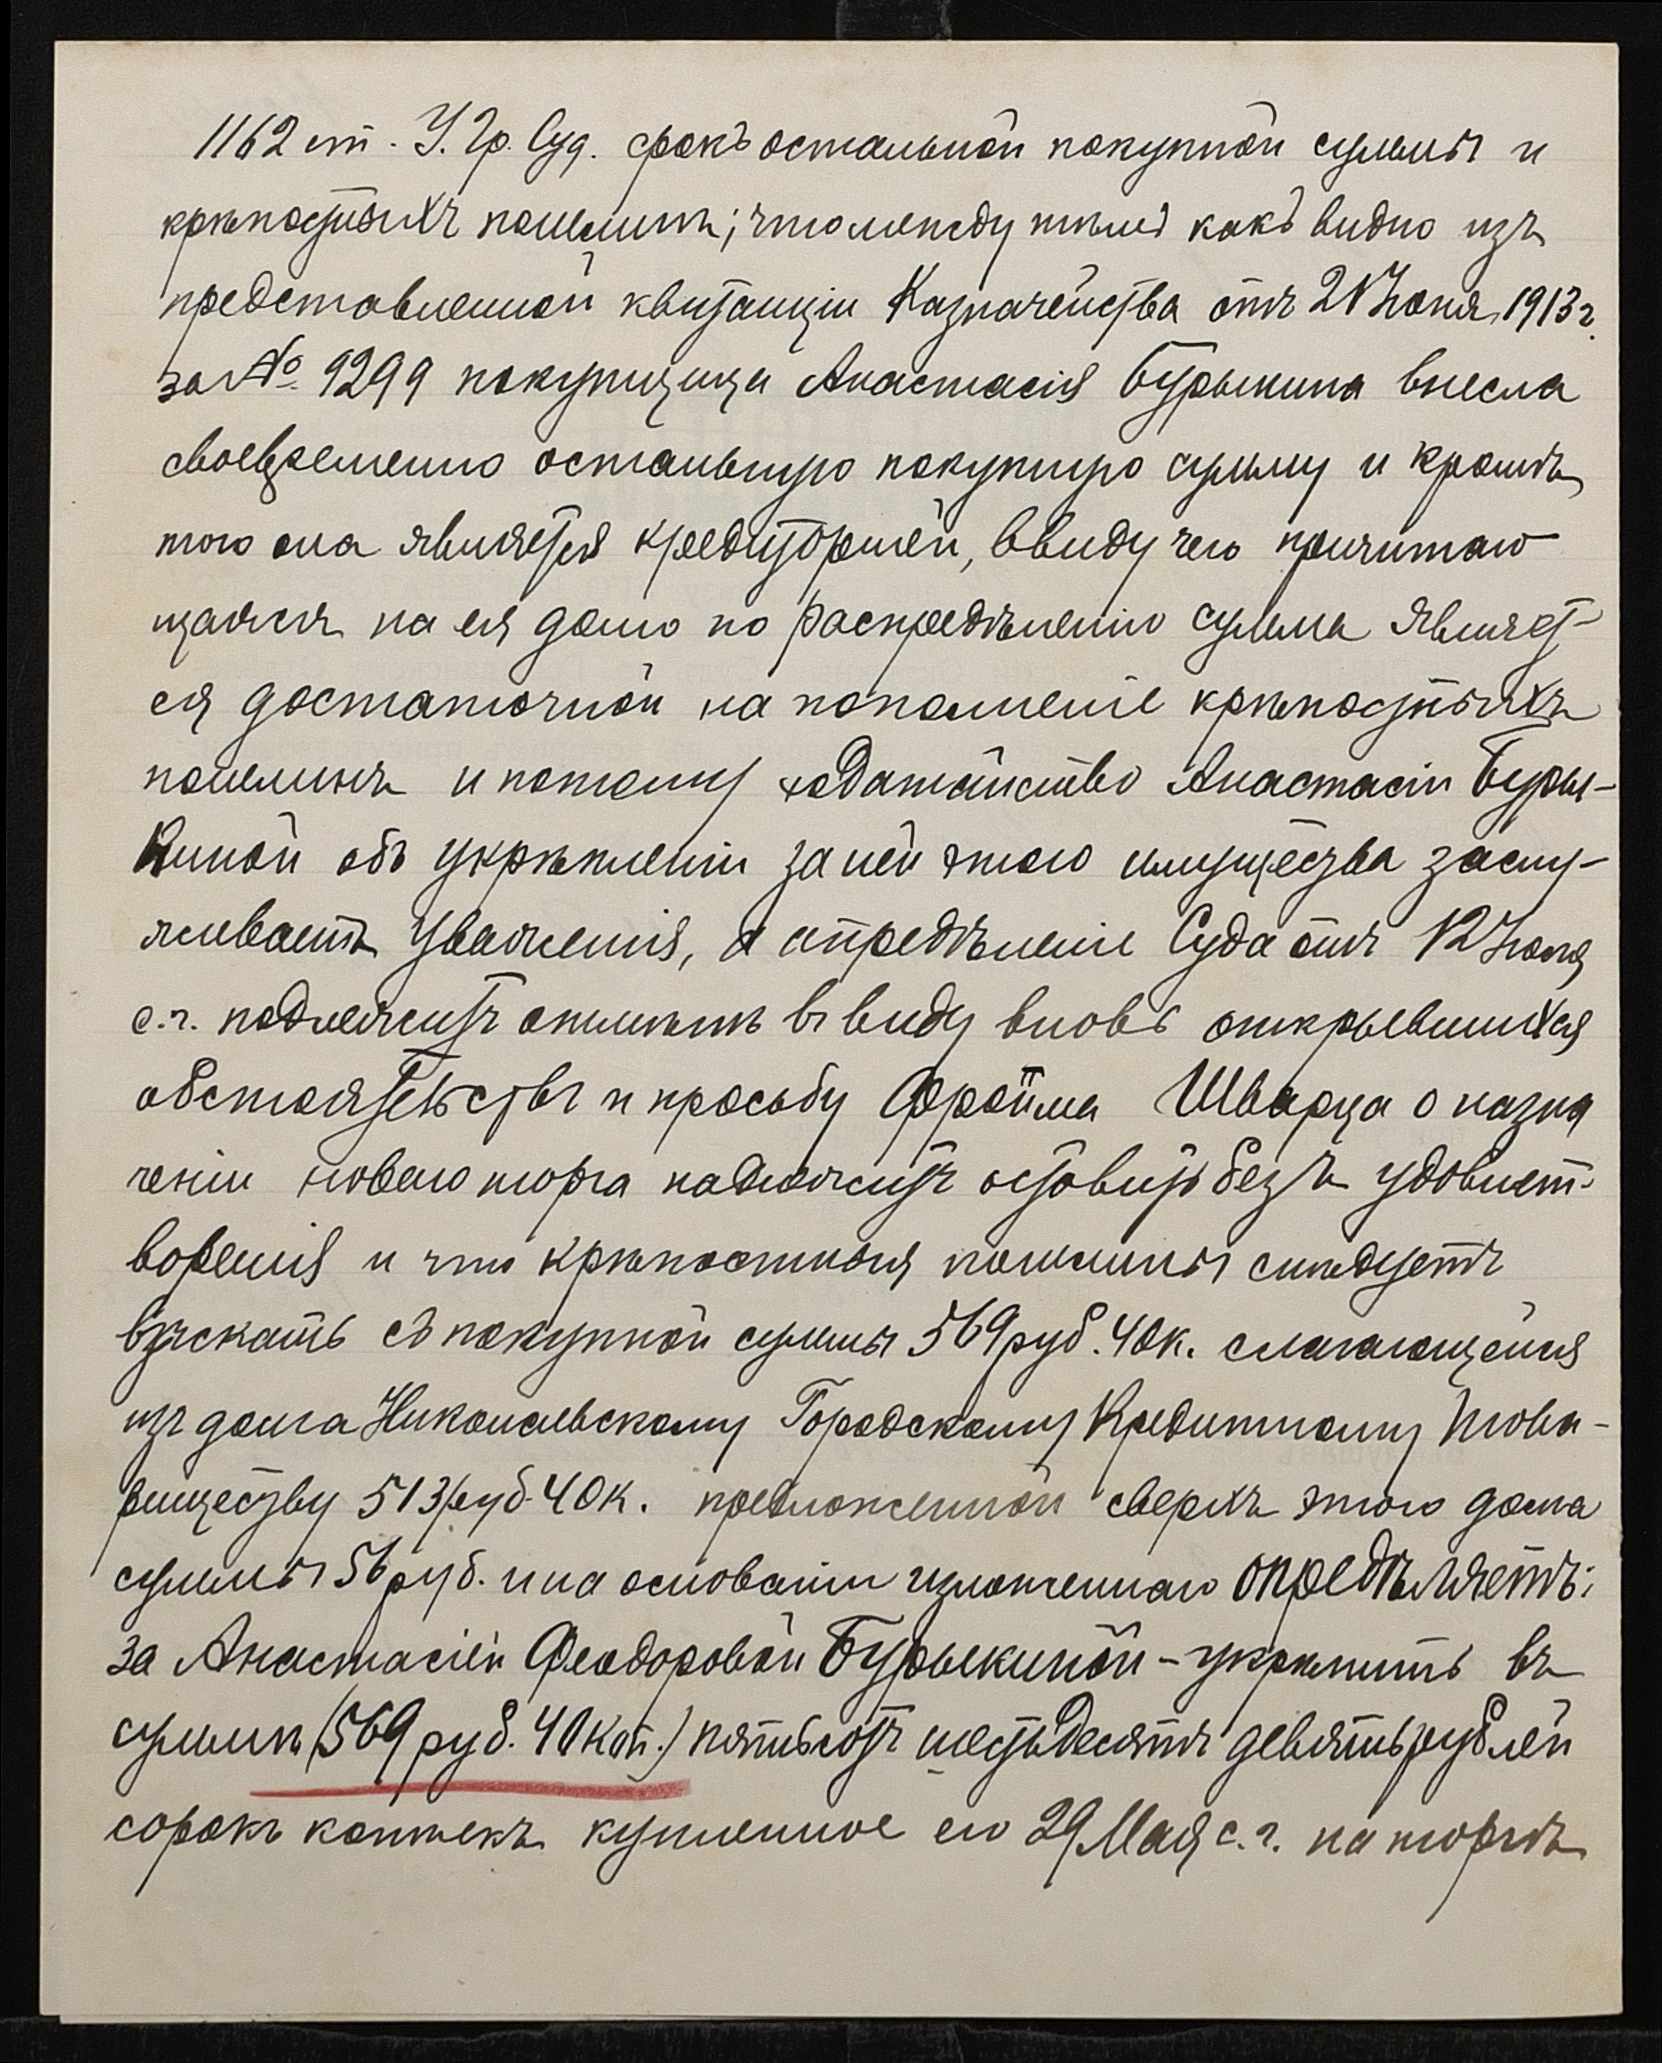 1162 ст. У. Гр. Суд. срокъ остальной покупной суммы и
крѣпостныхъ пошлинъ; что между тѣмъ какъ видно изъ
представленной квитанціи Казначейства отъ 21 Іюня 1913 г.
за № 9299 покупщица Анастасія Бурыкина внесла
своевременно остальную покупную сумму и кромѣ
того она является кредиторшей, ввиду чего причитаю
щаяся на ея долю по распредѣленію сумма являет-
ся достаточной на пополненіе крѣпостныхъ
пошлинъ и потому ходатайство Анастасіи Буры-
киной объ укрѣпленіи за ней этого имущества заслу-
живаетъ уваженія, а опредѣленіе Суда отъ 12 Іюня
с.г. подлежитъ отмѣнѣ въ виду вновь открывшихся
обстоятельствъ и просьбу Фроима Шварца о назна
ченіи новаго торга надлежитъ оставить безъ удовлет-
воренія и что крѣпостныя пошлины слѣдуетъ
взыскать съ покупной суммы 569 руб. 40 к. слагающейся
изъ долга Николаевскому Городскому Кредитному Това-
риществу 513 руб. 40 к. предложенной сверхъ этого долга
суммы 56 руб. и на основаніи изложеннаго опредѣляетъ:
за Анастасіей Феодоровой Бурыкиной - укрѣпить въ
суммѣ (569 руб. 40 коп.) пятьсотъ шестьдесятъ девять рублей
сорокъ копѣекъ купленное ею 29 Мая с. г. на торгѣ